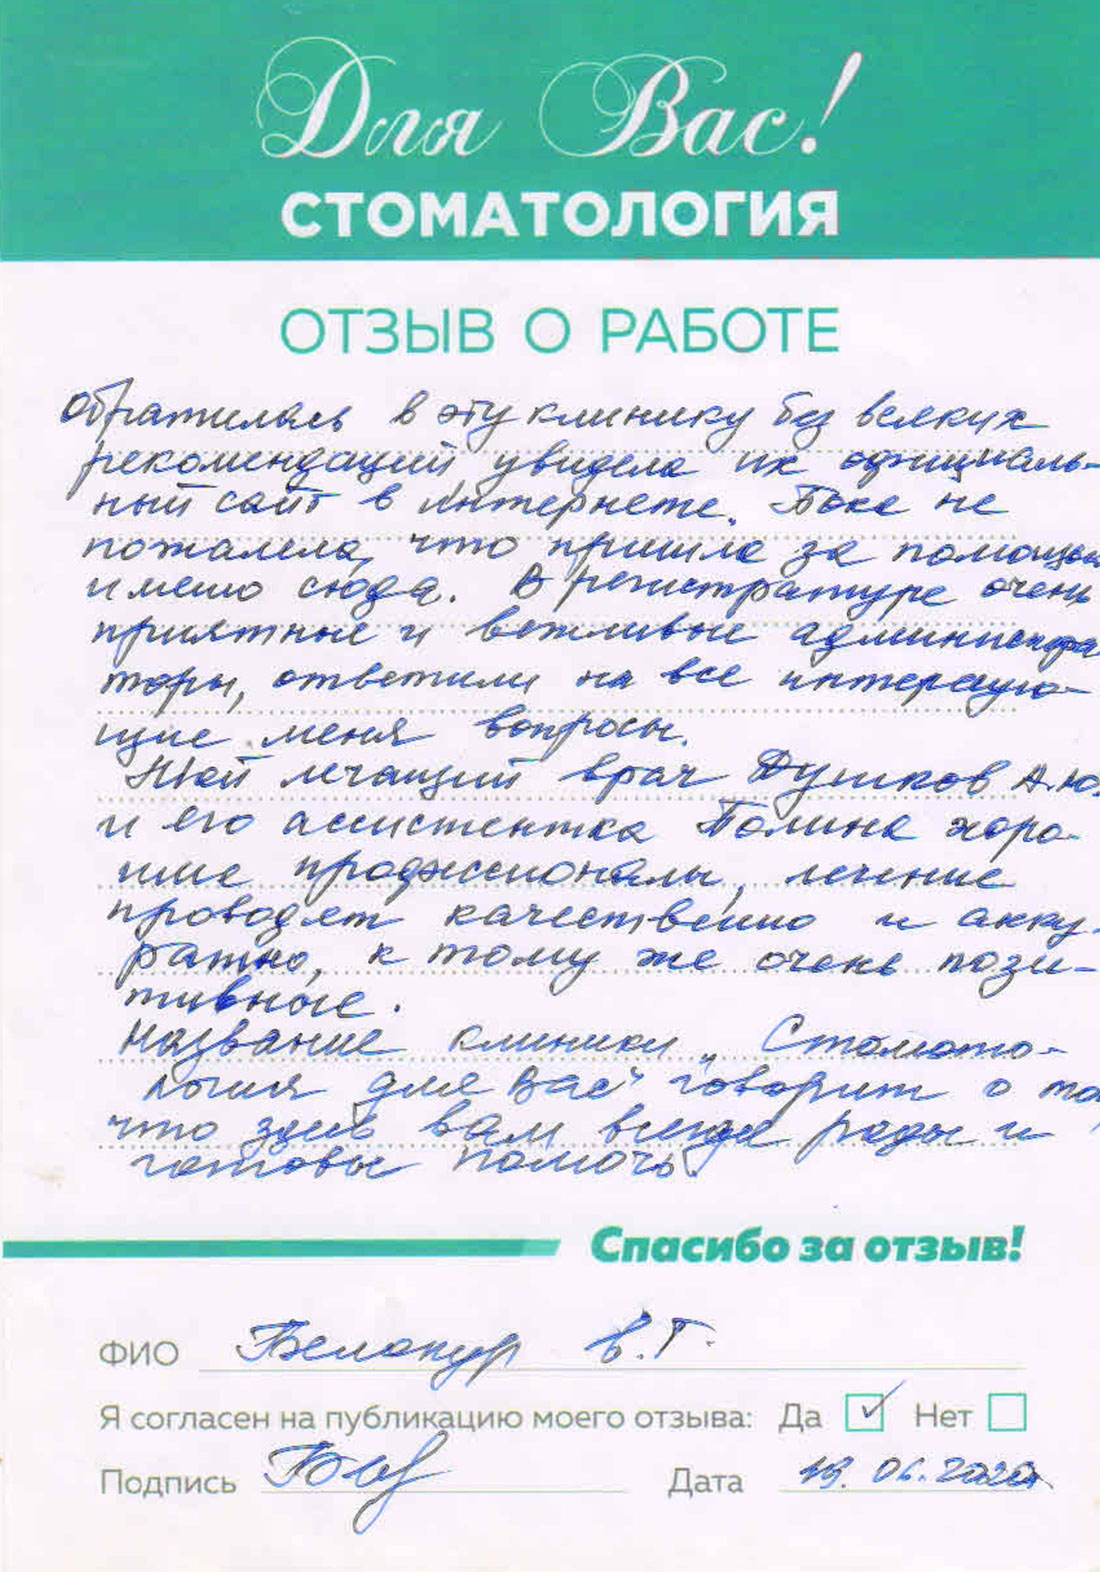 Для Вас!
СТОМАТОЛОГИЯ
ОТЗЫВ О РАБОТЕ
Обратилась в эту клинику без всяких
рекомендаций увидела их официаль-
ный сайт в Интернете. Пока не
пожалела, что пришла за помощью
именно сюда. В регистратуре очень
приятные и вежливые администра
торы, ответили на все интересую-
щие меня вопросы.
Мой лечащий врач Душков А.Ю.
и его ассистентка Полина хоро-
шие профессионалы, лечение
проводят качественно и акку-
ратно, к тому же очень пози-
тивные.
Название клиники „Стомато-
логия для Вас“ говорит о то
что здесь вам всегда рады и
готовы помочь.
Спасибо за отзыв!
ФИО Белокур В.Г.
Я согласен на публикацию моего отзыва: Да ✓ Нет
Подпись Дата 19.06.2020г